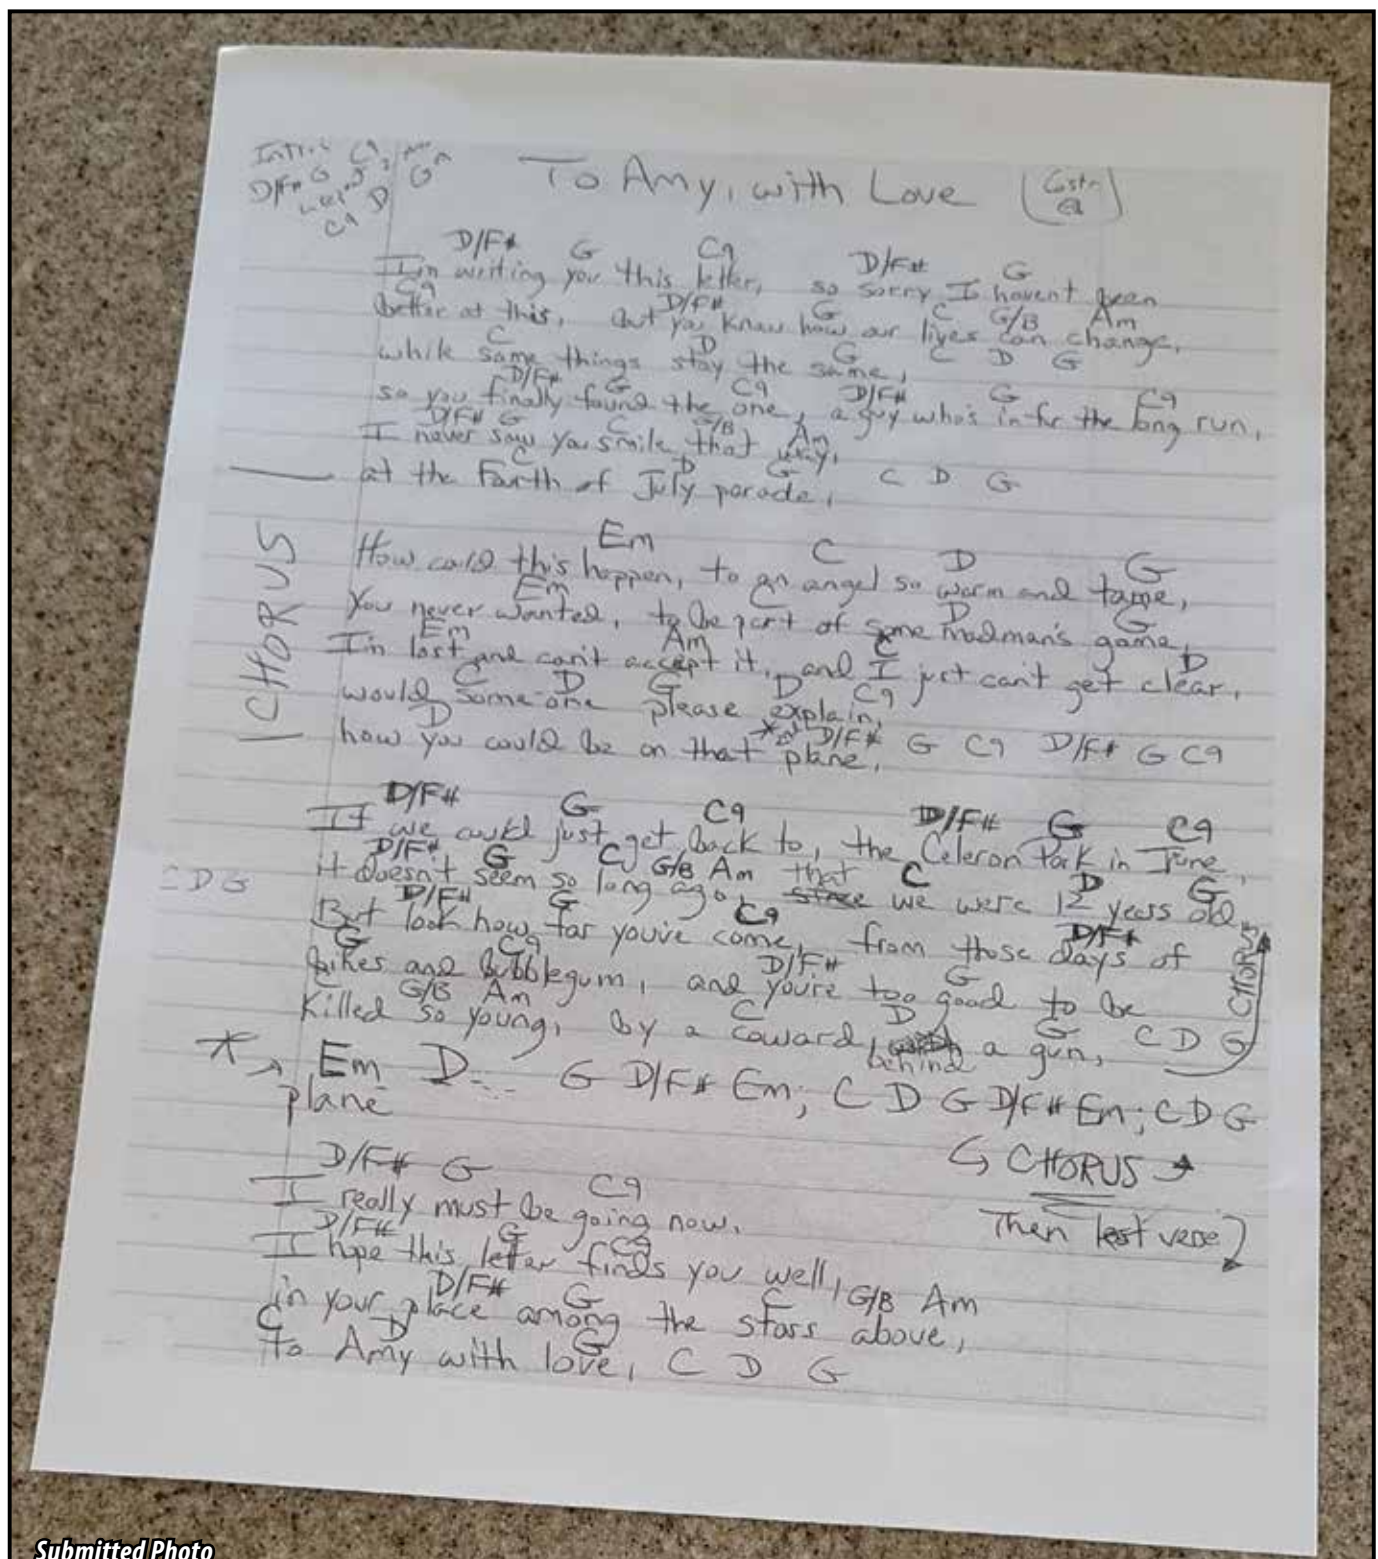 Intro: C9
D/F# G
C9 D G
To Amy, with Love
D/F# G C9 D/F# G
I'm writing you this letter, so sorry I havent been
C9 D/F# G C G/B Am
better at this, but you know how our lives can change,
C D G C D G
while some things stay the same,
D/F# G C9 D/F# G C9
so you finally found the one, a guy who's in for the long run,
D/F# G C G/B Am
I never saw you smile that way,
C D G C D G
at the Fourth of July parade,
CHORUS
Em C D G
How could this happen, to an angel so warm and tame,
Em C D G
You never wanted, to be part of some madman's game,
Em Am C D
I'm lost and can't accept it, and I just can't get clear,
C D G D C9
would some-one please explain,
D * D/F# G C9 D/F# G C9
how you could be on that plane,
D/F# G C9 D/F# G C9
If we could just get back to, the Celeron Park in June,
D/F# G C G/B Am that C D G
it doesn't seem so long ago, since we were 12 years old,
C D G
D/F# G C9 D/F#
But look how far you've come, from those days of
G C9 D/F# G
bikes and bubblegum, and you're too good to be
CHORUS
C G/B Am C D G C D G
Killed so young, by a coward, behind a gun,
* Em D... G D/F# Em; C D G D/F# Em; C D G
plane
CHORUS
Then last verse
D/F# G C9
I really must be going now,
D/F# G C9
I hope this letter finds you well,
D/F# G C G/B Am
in your place among the stars above,
C D G
To Amy with love, C D G
Submitted Photo